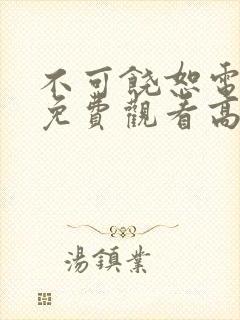 不可饒恕電
免費觀看高
湯鎮業